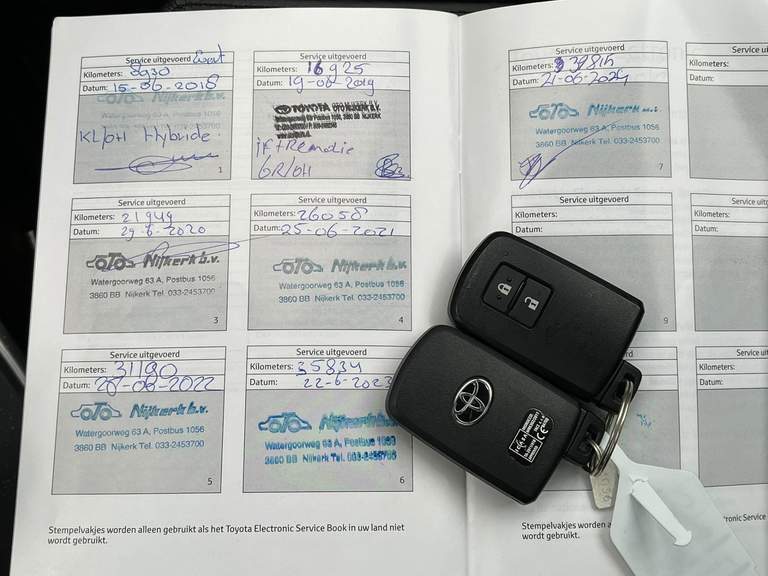 Service uitgevoerd
Kilometers: 8930
Datum: 15-06-2018
OTO Nijkerk b.v.
Watergoorweg 63 A, Postbus 1056
3860 BB Nijkerk Tel. 033-2453700
KL/OH Hybride
1
Service uitgevoerd
Kilometers: 16925
Datum: 19-06-2019
TOYOTA
6R/OH
Service uitgevoerd
Kilometers: 21949
Datum: 29-6-2020
OTO Nijkerk b.v.
Watergoorweg 63 A, Postbus 1056
3860 BB Nijkerk Tel. 033-2453700
3
Service uitgevoerd
Kilometers: 26058
Datum: 25-06-2021
OTO Nijkerk b.v.
Watergoorweg 63 A, Postbus 1056
3860 BB Nijkerk Tel. 033-2453700
4
Service uitgevoerd
Kilometers: 31190
Datum: 28-06-2022
OTO Nijkerk b.v.
Watergoorweg 63 A, Postbus 1056
3860 BB Nijkerk Tel. 033-2453700
5
Service uitgevoerd
Kilometers: 35834
Datum: 22-6-2023
OTO Nijkerk b.v.
Watergoorweg 63 A, Postbus 1056
3860 BB Nijkerk Tel. 033-2453700
6
Stempelvakjes worden alleen gebruikt als het Toyota Electronic Service Book in uw land niet
wordt gebruikt.
Service uitgevoerd
Kilometers: 39815
Datum: 21-06-2024
OTO Nijkerk
Watergoorweg 63 A, Postbus 1056
3860 BB Nijkerk Tel. 033-2453700
7
Service uitgevoerd
Kilometers:
Datum:
9
Stempelvakjes worden
wordt gebruikt.
Service
Kilometers:
Datum:
Kilometers
Datum: